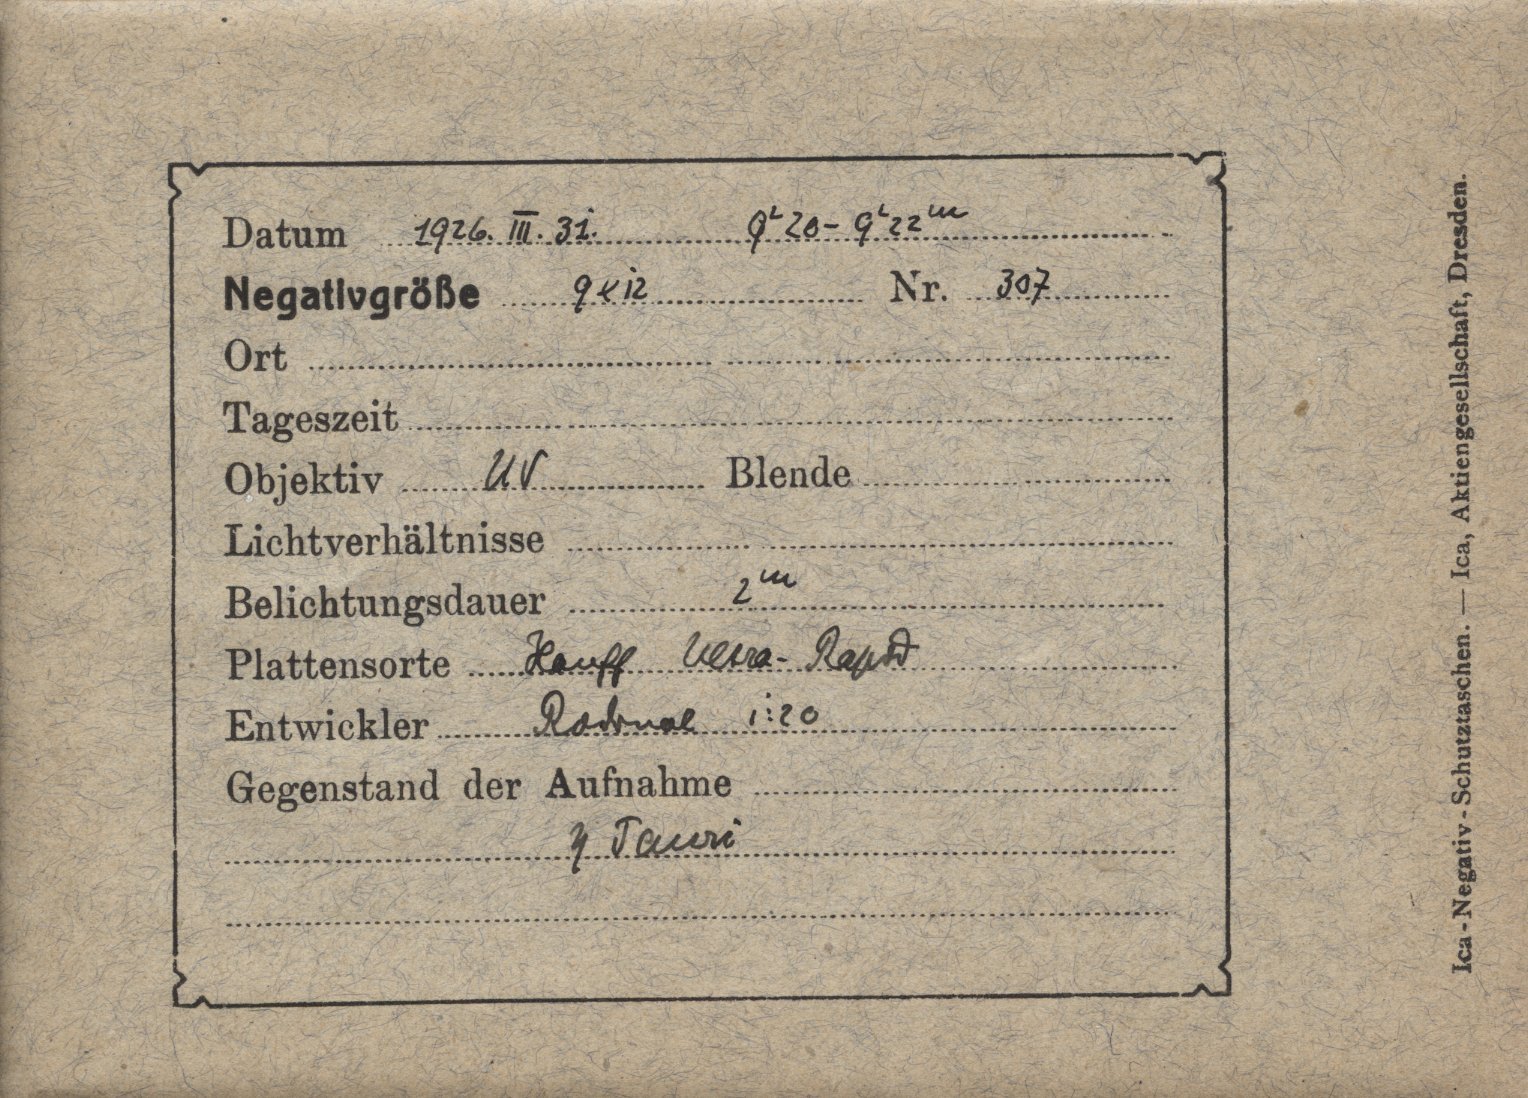 Datum 1926. III. 31. 9ʰ20 – 9ʰ22ᵐ
Negativgröße 9x12 Nr. 307
Ort
Tageszeit
Objektiv UV Blende
Lichtverhältnisse
Belichtungsdauer 2ᵐ
Plattensorte Hauff Ultra-Rapid
Entwickler Rodinal 1:20
Gegenstand der Aufnahme
η Tauri
Ica-Negativ-Schutztaschen. — Ica, Aktiengesellschaft, Dresden.